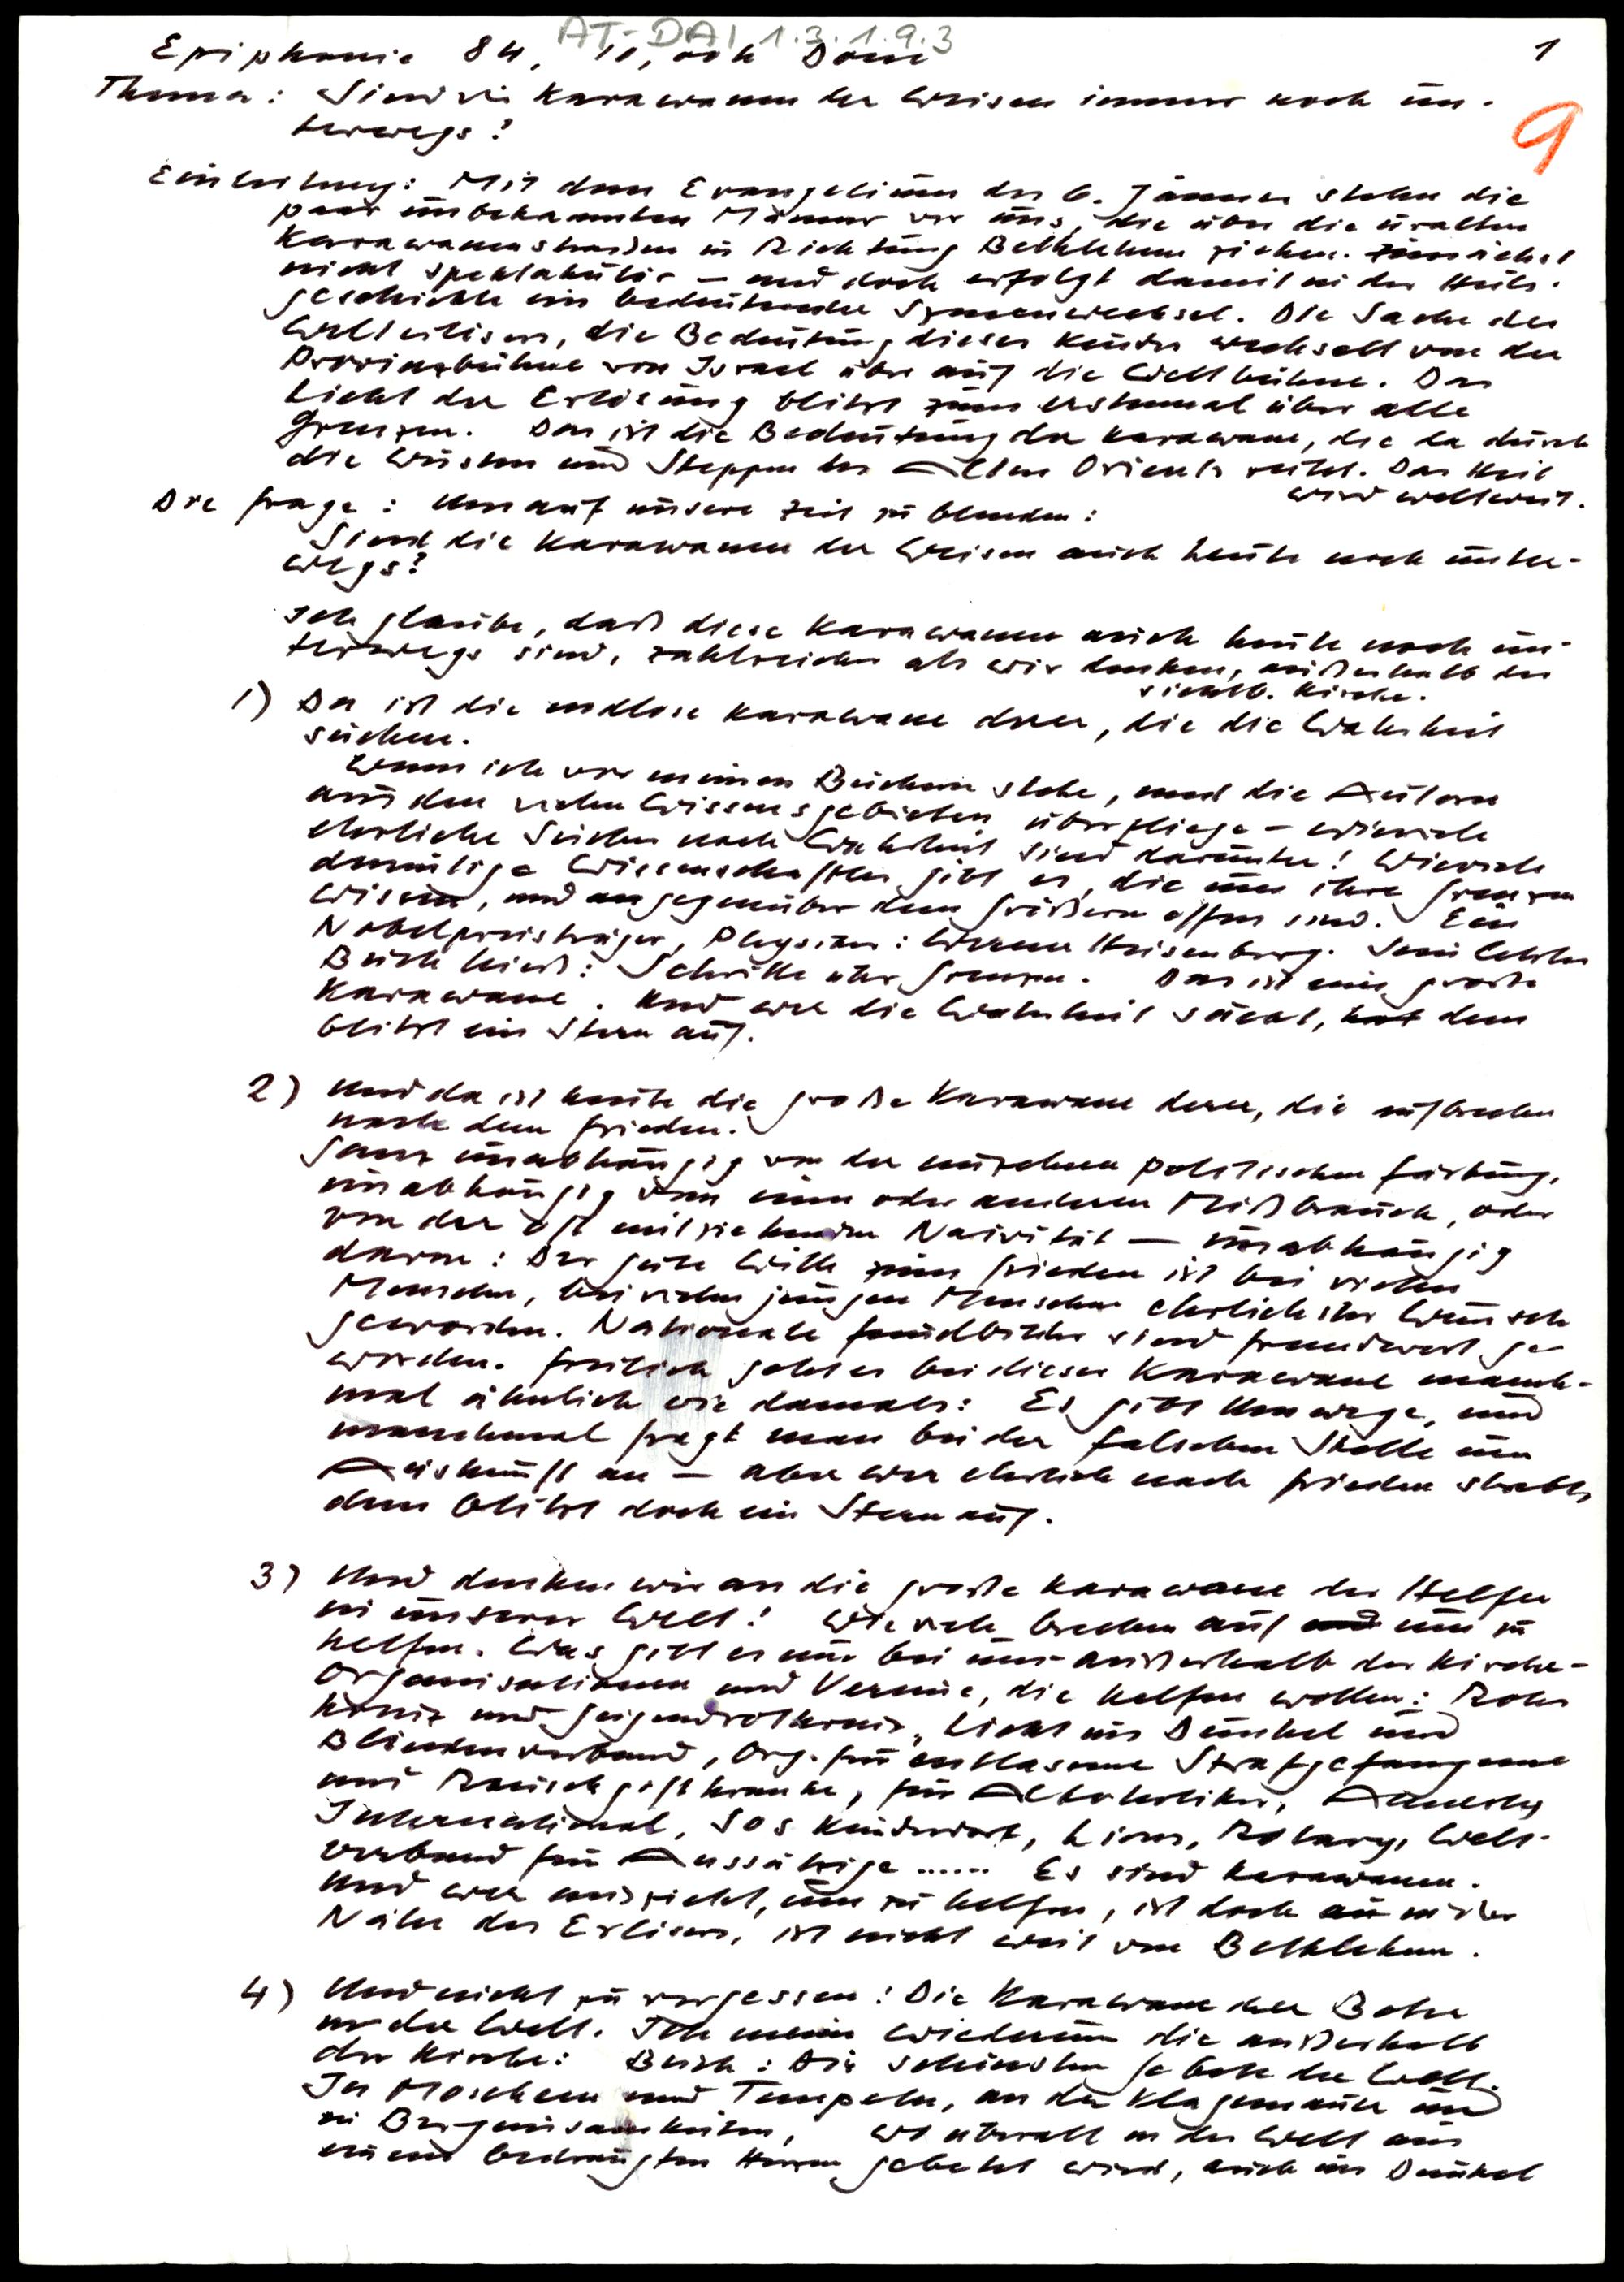 AT-DAI 1.3.1.9.3
Epiphanie 84, 10,00h Dom
1
9
Thema: Sind die Karawanen der Weisen immer noch un-
terwegs?
Einleitung: Mit dem Evangelium des 6. Jänner stehen die
paar unbekannten Männer vor uns, die über die uralten
Karawanenstraßen in Richtung Bethlehem ziehen. Zunächst
nicht spektakulär – und doch erfolgt damit in der Heils-
geschichte ein bedeutender Szenenwechsel. Die Sache des
Welterlösers, die Bedeutung dieses Kindes wechselt von der
Provinzbühne von Israel über auf die Weltbühne. Das
Licht der Erlösung blitzt zum erstenmal über alle
Grenzen. Das ist die Bedeutung der Karawane, die da durch
die Wüsten und Steppen des Alten Orients zieht. Das Heil
wird weltweit.
Die Frage: Um auf unsere Zeit zu blenden:
Sind die Karawanen der Weisen auch heute noch unter-
wegs?
Ich glaube, daß diese Karawanen auch heute noch un-
terwegs sind, zahlreicher als wir denken, außerhalb der
sichtb. Kirche.
1) Da ist die endlose Karawane derer, die die Wahrheit
suchen.
Wenn ich vor meinen Büchern stehe, und die Autoren
aus den vielen Wissensgebieten überfliege – wieviele
ehrliche Sucher nach Wahrheit sind darunter! Wieviele
demütige Wissenschaftler gibt es, die um ihre Grenzen
wissen, und gegenüber dem Größeren offen sind. Ein
Nobelpreisträger, Physiker: Werner Heisenberg. Sein letztes
Buch hieß: Schritte über Grenzen. Das ist eine große
Karawane. Und wer die Wahrheit sucht, hat dem
blitzt ein Stern auf.
2) Und da ist heute die große Karawane derer, die aufbrechen
nach dem Frieden.
Ganz unabhängig von der einzelnen politischen Färbung,
unabhängig vom einen oder anderen Mißbrauch, oder
von der oft mitziehenden Naivität – unabhängig
davon: Der gute Wille zum Frieden ist bei vielen
Menschen, bei vielen jungen Menschen ehrlichster Wunsch
geworden. Nationale Feindbilder sind fremdwert ge-
worden. Freilich geht es bei dieser Karawane manch-
mal ähnlich wie damals: Es gibt Umwege, und
manchmal fragt man bei der falschen Stelle um
Auskunft an – aber wer ehrlich nach Frieden strebt,
dem blitzt doch ein Stern auf.
3) Und denken wir an die große Karawane der Helfer
in unserer Welt! Wie viele brechen auf und um zu
helfen. Was gibt es nur bei uns – außerhalb der Kirche –
Organisationen und Vereine, die helfen wollen: Rotes
Kreuz und Jugendrotkreuz, Licht ins Dunkel und
Blindenverband, Org. für entlassene Strafgefangene
und Rauschgiftkranke, für Alkoholiker, Amnesty
International, SOS Kinderdorf, Lions, Rotary, Welt-
verband für Aussätzige ...... Es sind Karawanen.
Und wer auszieht, um zu helfen, ist doch in der
Nähe des Erlösers, ist nicht weit von Bethlehem.
4) Und nicht zu vergessen: Die Karawane der Beter
in der Welt. Ich meine wiederum die außerhalb
der Kirche: Buch: Die schönsten Gebete der Welt.
In Moscheen und Tempeln, an der Klagemauer und
in Bergeinsamkeiten, wo überall in der Welt aus
einem bedrängten Herzen gebetet wird, auch im Dunkel